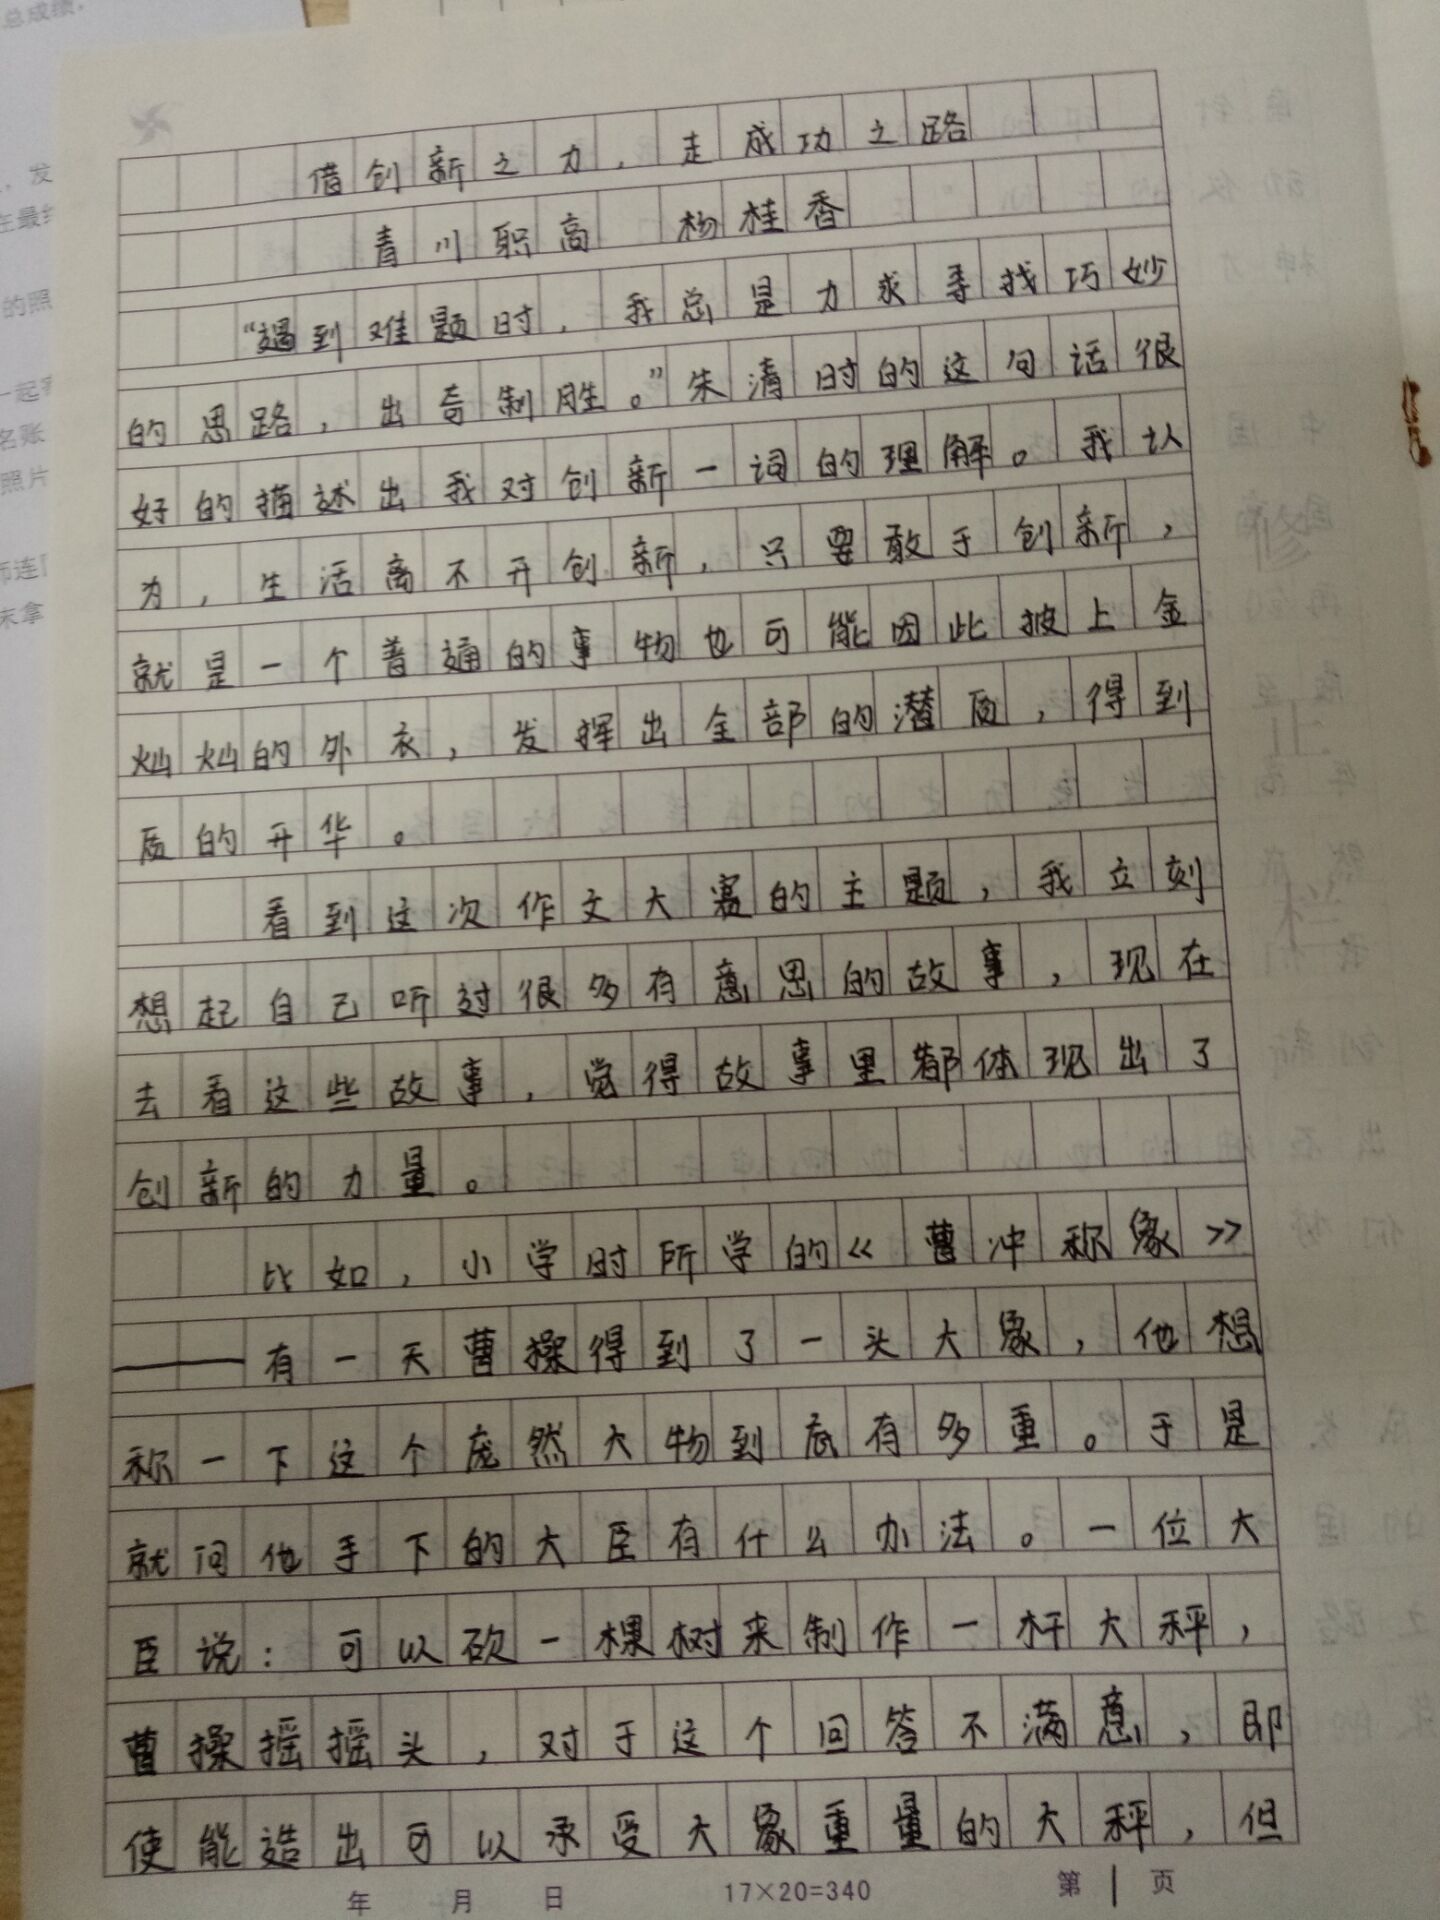 总成绩.
，发
在最终
的照
一起
名账
照片
师连
末拿
借创新之力，走成功之路
青川职高 杨桂香
“遇到难题时，我总是力求寻找巧妙
的思路，出奇制胜。”朱清时的这句话很
好的描述出我对创新一词的理解。我认
为，生活离不开创新，只要敢于创新，
就是一个普通的事物也可能因此披上金
灿灿的外衣，发挥出全部的潜质，得到
质的升华。
看到这次作文大赛的主题，我立刻
想起自己听过很多有意思的故事，现在
去看这些故事，觉得故事里都体现出了
创新的力量。
比如，小学时所学的《曹冲称象》
——有一天曹操得到了一头大象，他想
称一下这个庞然大物到底有多重。于是
就问他手下的大臣有什么办法。一位大
臣说：可以砍一棵树来制作一杆大秤，
曹操摇摇头，对于这个回答不满意，即
使能造出可以承受大象重量的大秤，但
年 月 日 17×20=340 第1页